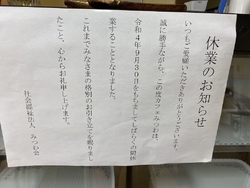 休業のお知らせ
いつもご愛顧いただきありがとうございます。
誠に勝手ながら、この度カフェみつわは、
令和４年９月３０日をもちましてしばらくの間休
業することとなりました。
これまでみなさまの格別のお引き立てを賜りまし
たこと、心からお礼申し上げます。
社会福祉法人　みつわ会